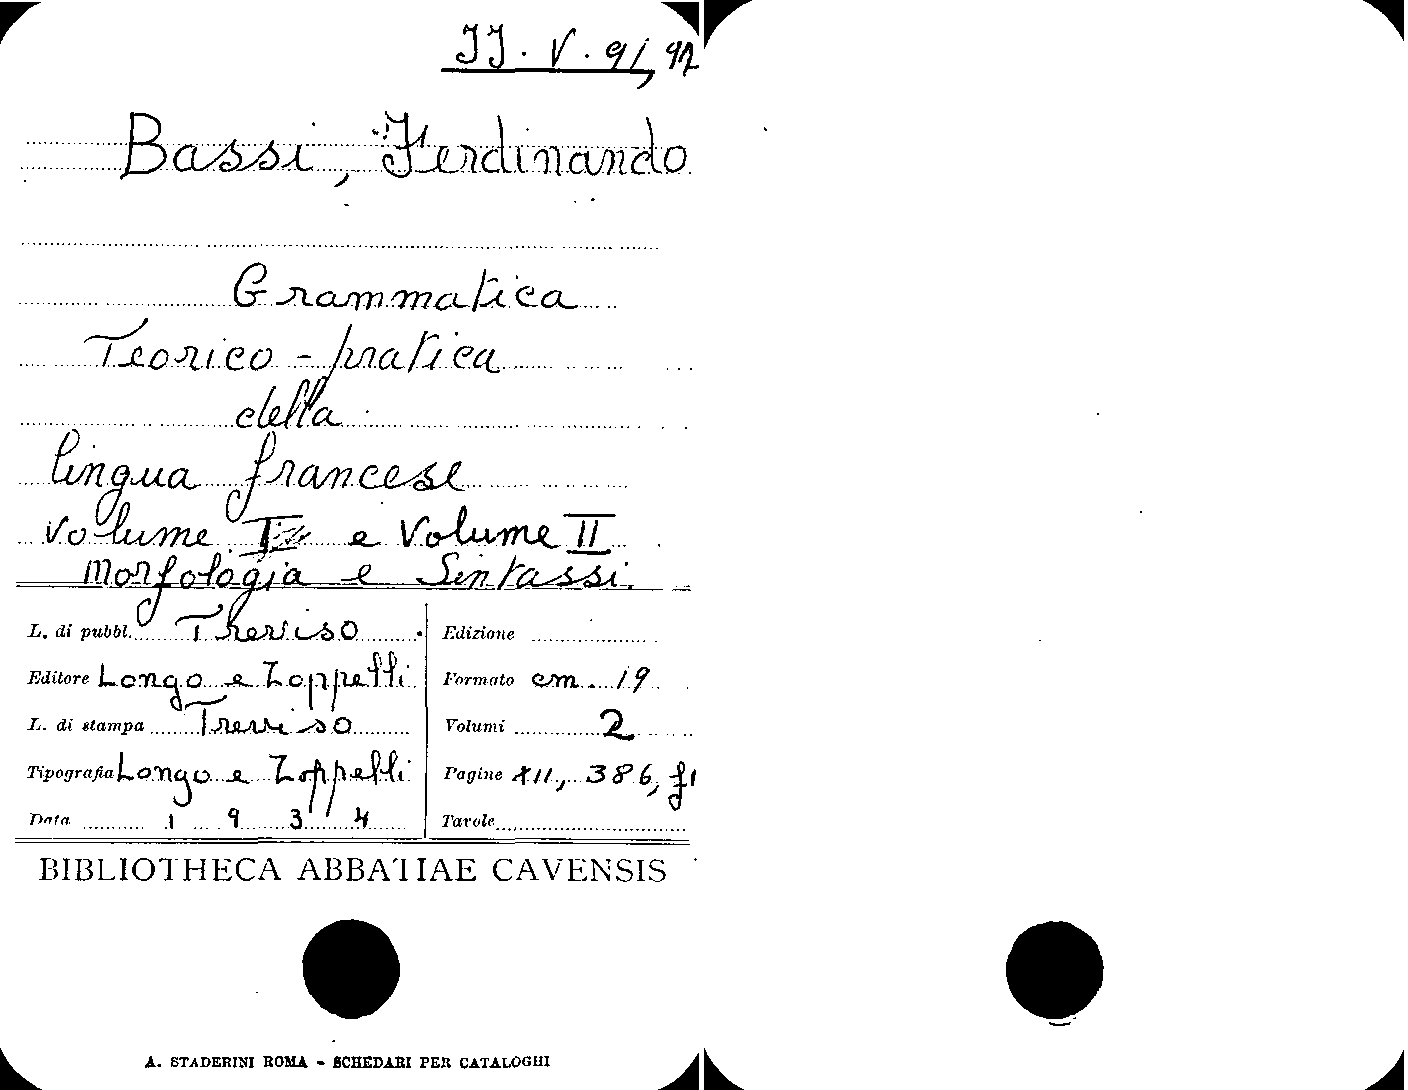 JJ. V. 91, 92
Bassi, Ferdinando
Grammatica
Teorico-pratica
della
lingua francese
Volume I e Volume II
Morfologia e Sintassi.
L. di pubbl. Treviso
Edizione
Editore Longo e Zoppelli
Formato cm. 19
L. di stampa Treviso
Volumi 2
Tipografia Longo e Zoppelli
Pagine XII, 386,
Data 1934
Tavole
BIBLIOTHECA ABBATIAE CAVENSIS
A. STADERINI ROMA - SCHEDARI PER CATALOGHI